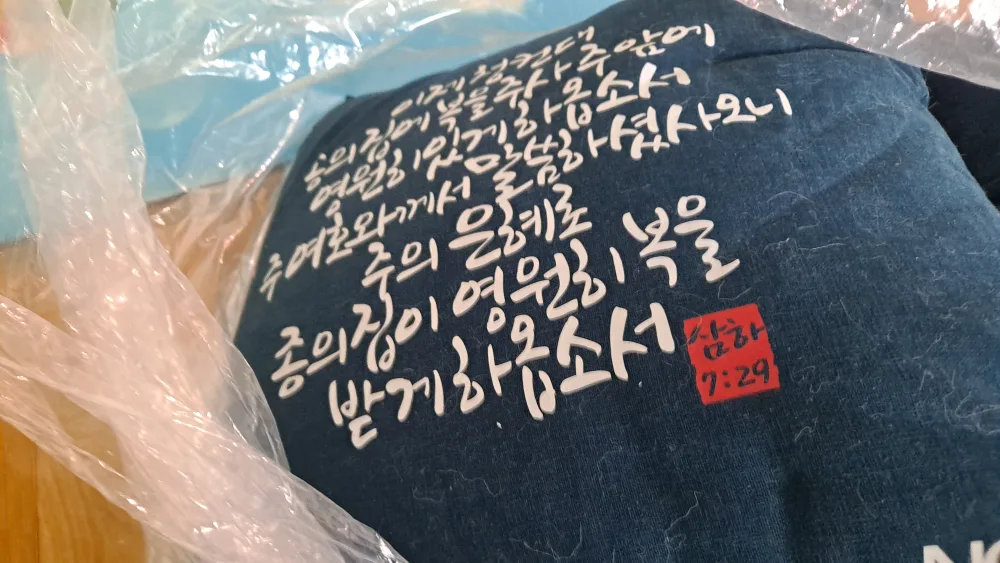 이제 청컨대
종의 집에 복을 주사 주 앞에
영원히 있게 하옵소서
주 여호와께서 말씀하셨사오니
주의 은혜로
종의 집이 영원히 복을
받게 하옵소서
삼하
7:29